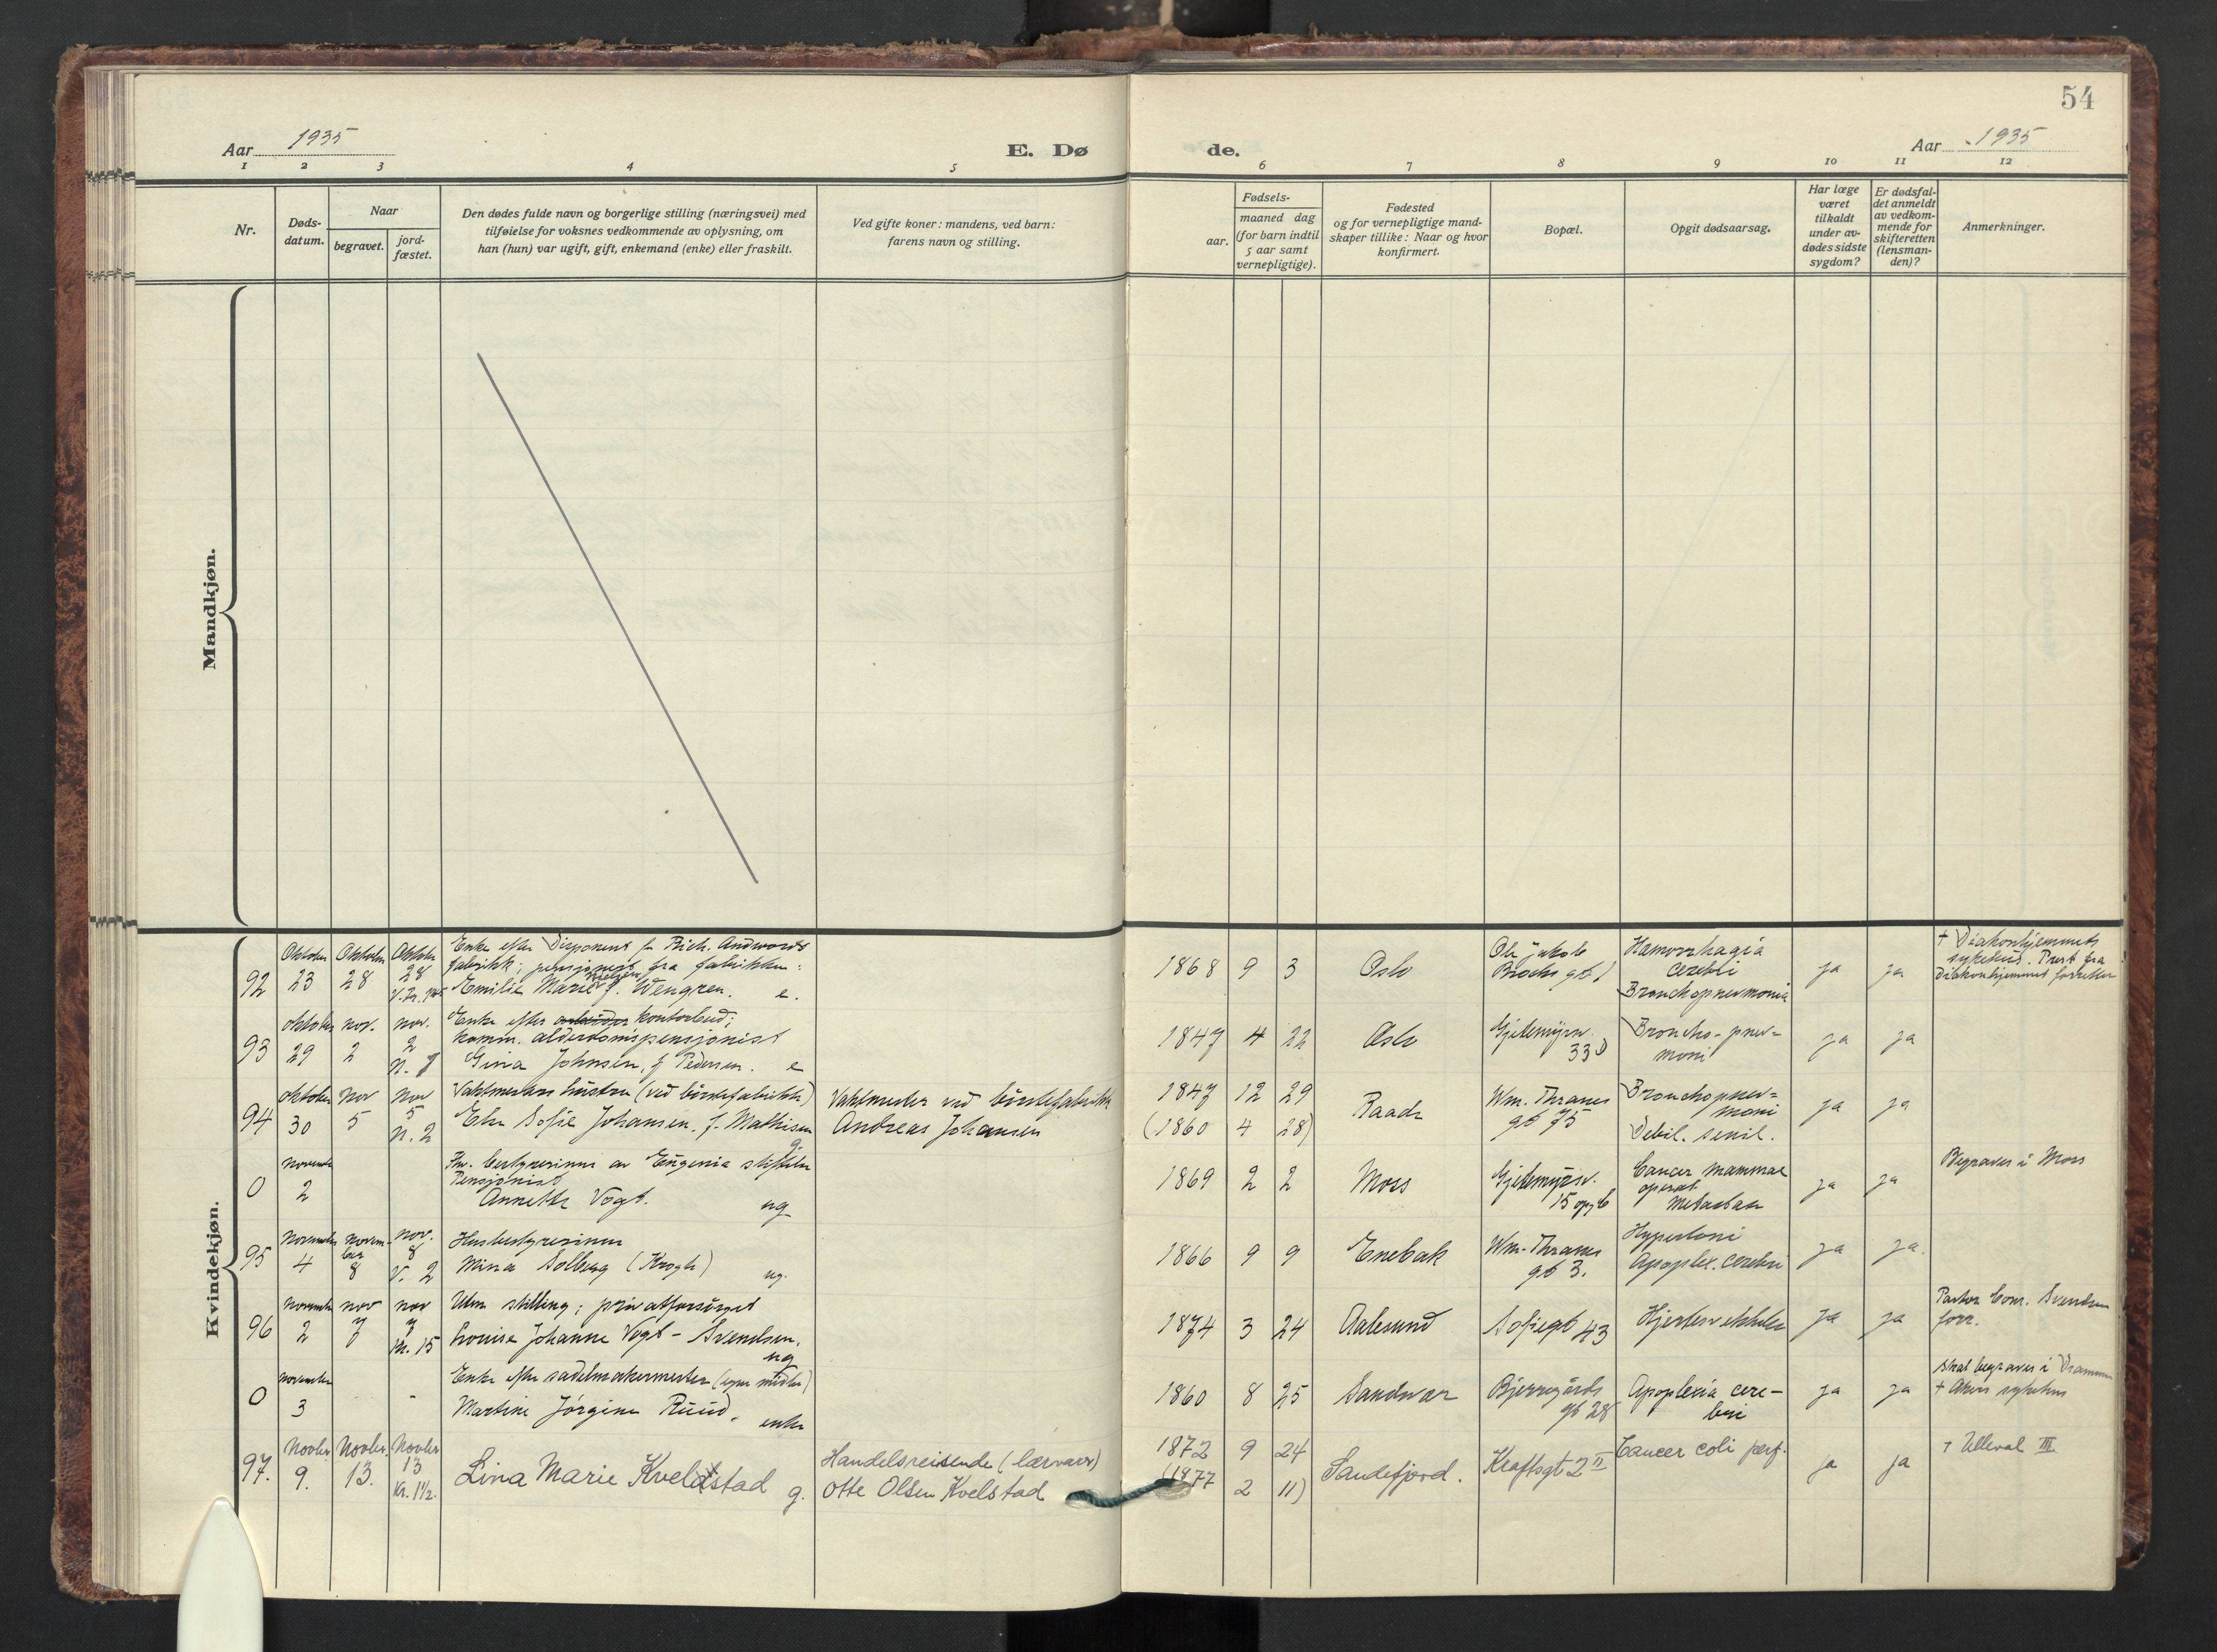 54
Aar 1935
E. Dø
de.
Aar 1935
1 2 3 4 5 6 7 8 9 10 11 12
Nr.
Døds-
datum.
Naar
begravet.
jord-
fæstet.
Den dødes fulde navn og borgerlige stilling (næringsvei) med
tilføielse for voksnes vedkommende av oplysning, om
han (hun) var ugift, gift, enkemand (enke) eller fraskilt.
Ved gifte koner: mandens, ved barn:
farens navn og stilling.
Fødsels-
aar.
maaned dag
(for barn indtil
5 aar samt
vernepligtige).
Fødested
og for vernepligtige mand-
skaper tillike: Naar og hvor
konfirmert.
Bopæl.
Opgit dødsaarsag.
Har læge
været
tilkaldt
under av-
dødes sidste
sygdom?
Er dødsfal-
det anmeldt
av vedkom-
mende for
skifteretten
(lensman-
den)?
Anmerkninger.
Mandkjøn.
Kvindekjøn.
92
Oktober
23
Oktober
28
Oktober
28
Enke efter Disponent Rich. Andvords
fabrikk; pensjonist fra fabrikken:
Emilie Marie f. Wengren. e.
1868 9 3
Oslo
Ole Jakob
Brochs gt 1
Hæmorrhagia
cerebri
Bronchopneumonia
ja
ja
† Diakonhjemmets
sykehus. Prest fra
Diakonhjemmet forretter
93
oktober
29
nov.
2
nov.
2
Enke efter arbeider kontorbud;
komm. alderdomspensjonist
Gina Johnsen, f. Pedersen. e
1847 4 22
Oslo
Gjetemyrsv.
33 D
Broncho-pnev=
moni
ja
ja
94
oktober
30
nov
5
nov
5
n. 2
Vaktmesters hustru (ved børstefabrikk)
Else Sofie Johansen. f. Mathisen
g.
Vaktmester ved børstefabrikk
Andreas Johansen
1847 12 29
(1860 4 28)
Raade
Wm. Thranes
gt 75
Bronchopnev=
moni
Debil. senil.
ja
ja
0
november
2
Fhv. bestyrerinne av Eugenia stiftelse
Pensjonist
Annette Vogt. ug
1869 2 2
Moss
Gjetemyrsv.
15
Cancer mammae
operat
Metastase
ja
ja
Begraves i Moss
95
November
4
novem-
ber
8
nov.
8
V. 2
Husbestyrerinne
Mina Solberg (Krogh) ug.
1866 9 9
Enebak
Wm. Thranes
gt 3.
Hypertoni
Apoplex. cerebri
ja
ja.
96
November
2
nov
7
nov
7
15
Uten stilling; privatforsørget
Louise Johanne Vogt-Svendsen.
ug
1874 3 24
Aalesund
Sofiegt 43
Hjertesvekkelse
ja
ja
Pastor Conr. Svendsen
forr.
0
november
3
Enke efter sadelmakermester (egne midler)
Martine Jørgine Ruud. enke
1860 8 25
Sandsvær
Bjerregårds
gt 28
Apoplexia cere-
bri
ja
ja
skal begraves i Drammen
† Akers sykehus
97.
Novbr.
9.
Novbr.
13.
Novbr.
13
Kr. 1½.
Lina Marie Kvelstad g.
Handelsreisende (lærvarer)
Otte Olsen Kvelstad
1872 9 24
(1877 2 11)
Sandefjord.
Kraftsgt 2 II
Cancer coli perf.
ja
ja
† Ullevål III